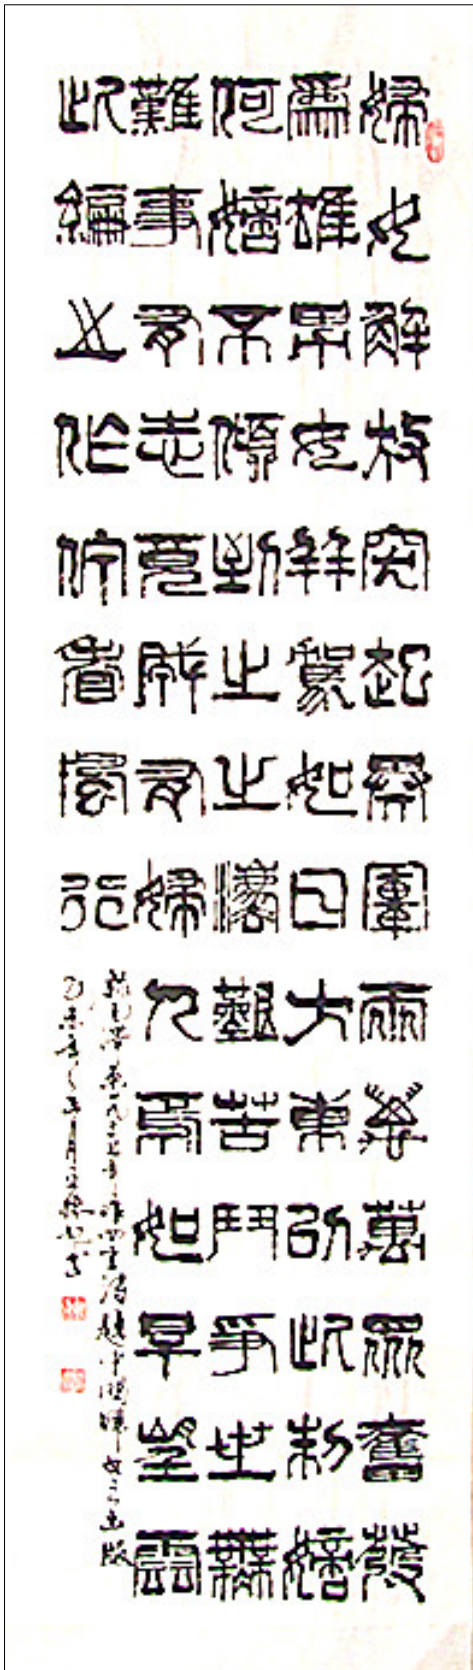 婦女解放突起異軍兩萬萬眾奮發
爲雄男女並駕如日方東以此制敵
何敵不傾到之之法艱苦鬥爭世無
難事有志竟成有婦人焉如旱望雲
此編之作佇看風行
作四言詩題中國婦女出版